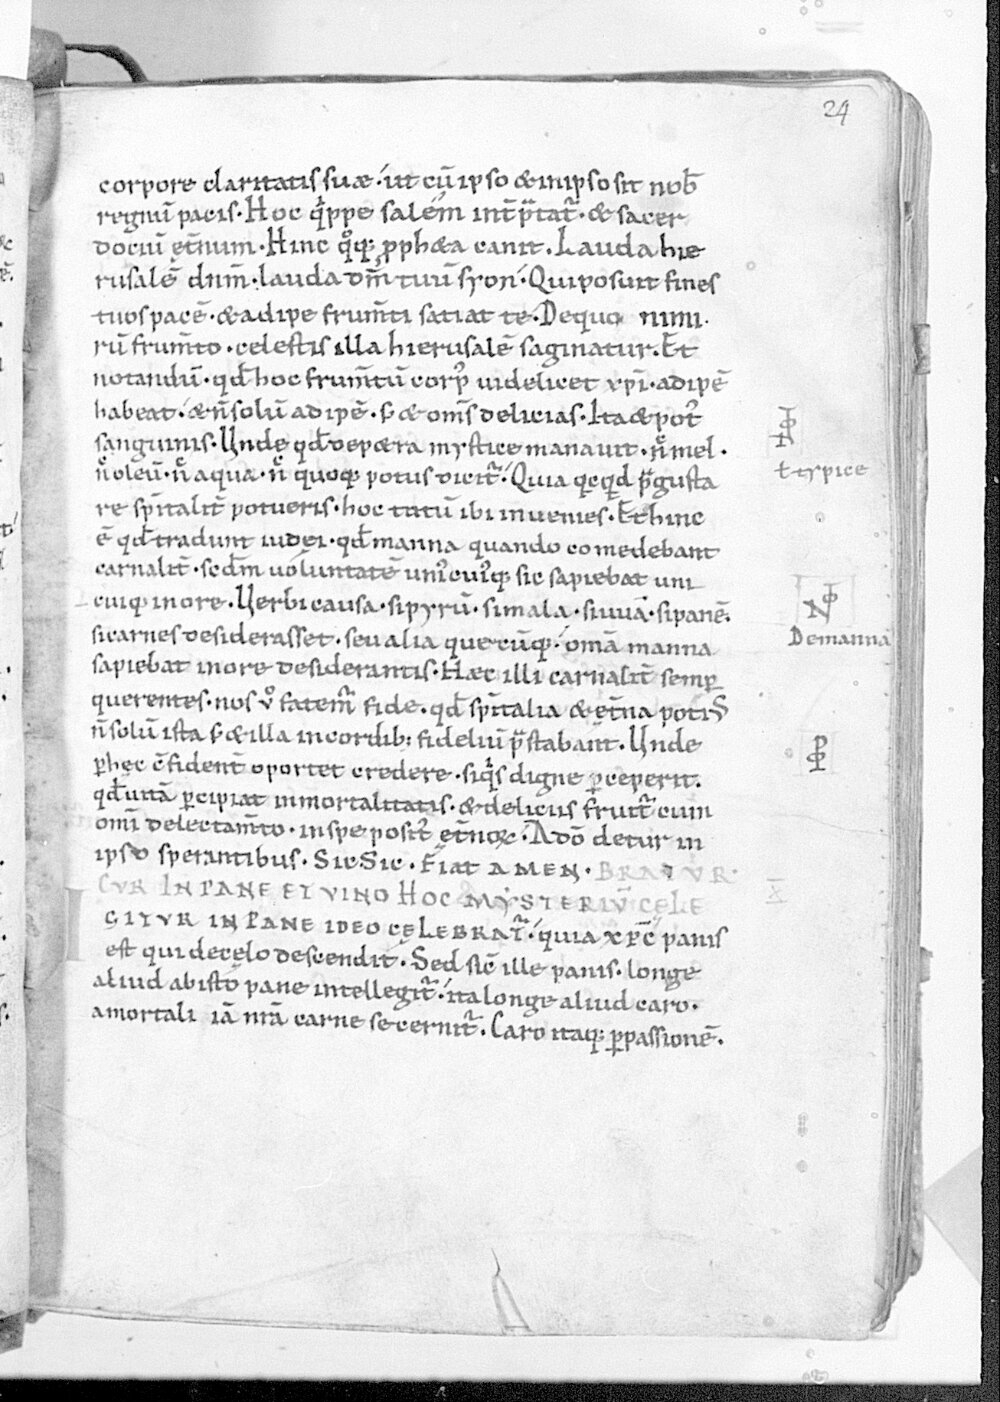 24
corpore claritatis suæ ut cū ipso & in ipso sit nob̄
regnū pacis · Hoc q̍ppe salém int̄p̄tat̄ · & sacer
dociū et̄num · Hinc q̊q; ꝓph&a canit . Lauda hie
rusalē dn̄m · lauda dm̄ tuū syon · Qui posuit fines
tuos pacē · & adipe frum̄ti satiat te · De quo nimi
rū frum̄to · celestis illa hierusalē saginatur . Et
notandū · qd̄ hoc frum̄tū corp᷒ uidelicet xp̄i · adipē
habeat · & n̄ solū adipē · s; & om̄s delicias · Ita & pot᷒
sanguinis · Unde qd̄ de p&ra mystice manauit · n̊ mel ·
n̊ oleū · n̊ aqua · n̊ quoq; potus dicit̄ · Quia qcqd p̄gusta
re sp̄italit̄ potueris · hoc totū ibi inuenies . Et hinc
ē qd̄ tradunt iudei · qd̄ manna quando comedebant
carnalit̄ · scd̄m uóluntatē uni᷒cui᷒q; sic sapiebat uni
cuiq; in ore · Uerbi causa · si pyrū · si mala · si uuā · si panē
si carnes desiderasset · seu alia quecūq; omā manna
sapiebat in ore desiderantis · Hæc illi carnalit̄ semp̄
querentes · nos v̊ fatem̄ fide · qd̄ sp̄italia & et̄na potiꝰ
n̄ solū ista s; & illa in cordib; fideliū p̄stabant . Unde
ꝑ hec c̄fident̄ oportet credere · si q̍s digne ꝑceperit .
qd̄ uitā ꝑcipiat inmortalitatis · & deliciis fruit̄ cum
omi delectam̄to · in spe posit᷒ et̄noꝝ · A dō detur in
ipso sperantibus · Sic Sic · Fiat AMEN ·
CVR IN PANE ET VINO HOC MYSTERIV̄ CELE
IN PANE IDEO CELEBRAT̄ · quia XP̄C panis
est qui de celo descendit · Sed sic̄ ille panis · longe
aliud ab isto pane intellegit̄ · ita longe aliud caro ·
a mortali iā n̄rā carne secernit̄ . Caro itaq; ꝑ passionē .
ł typice
De manna